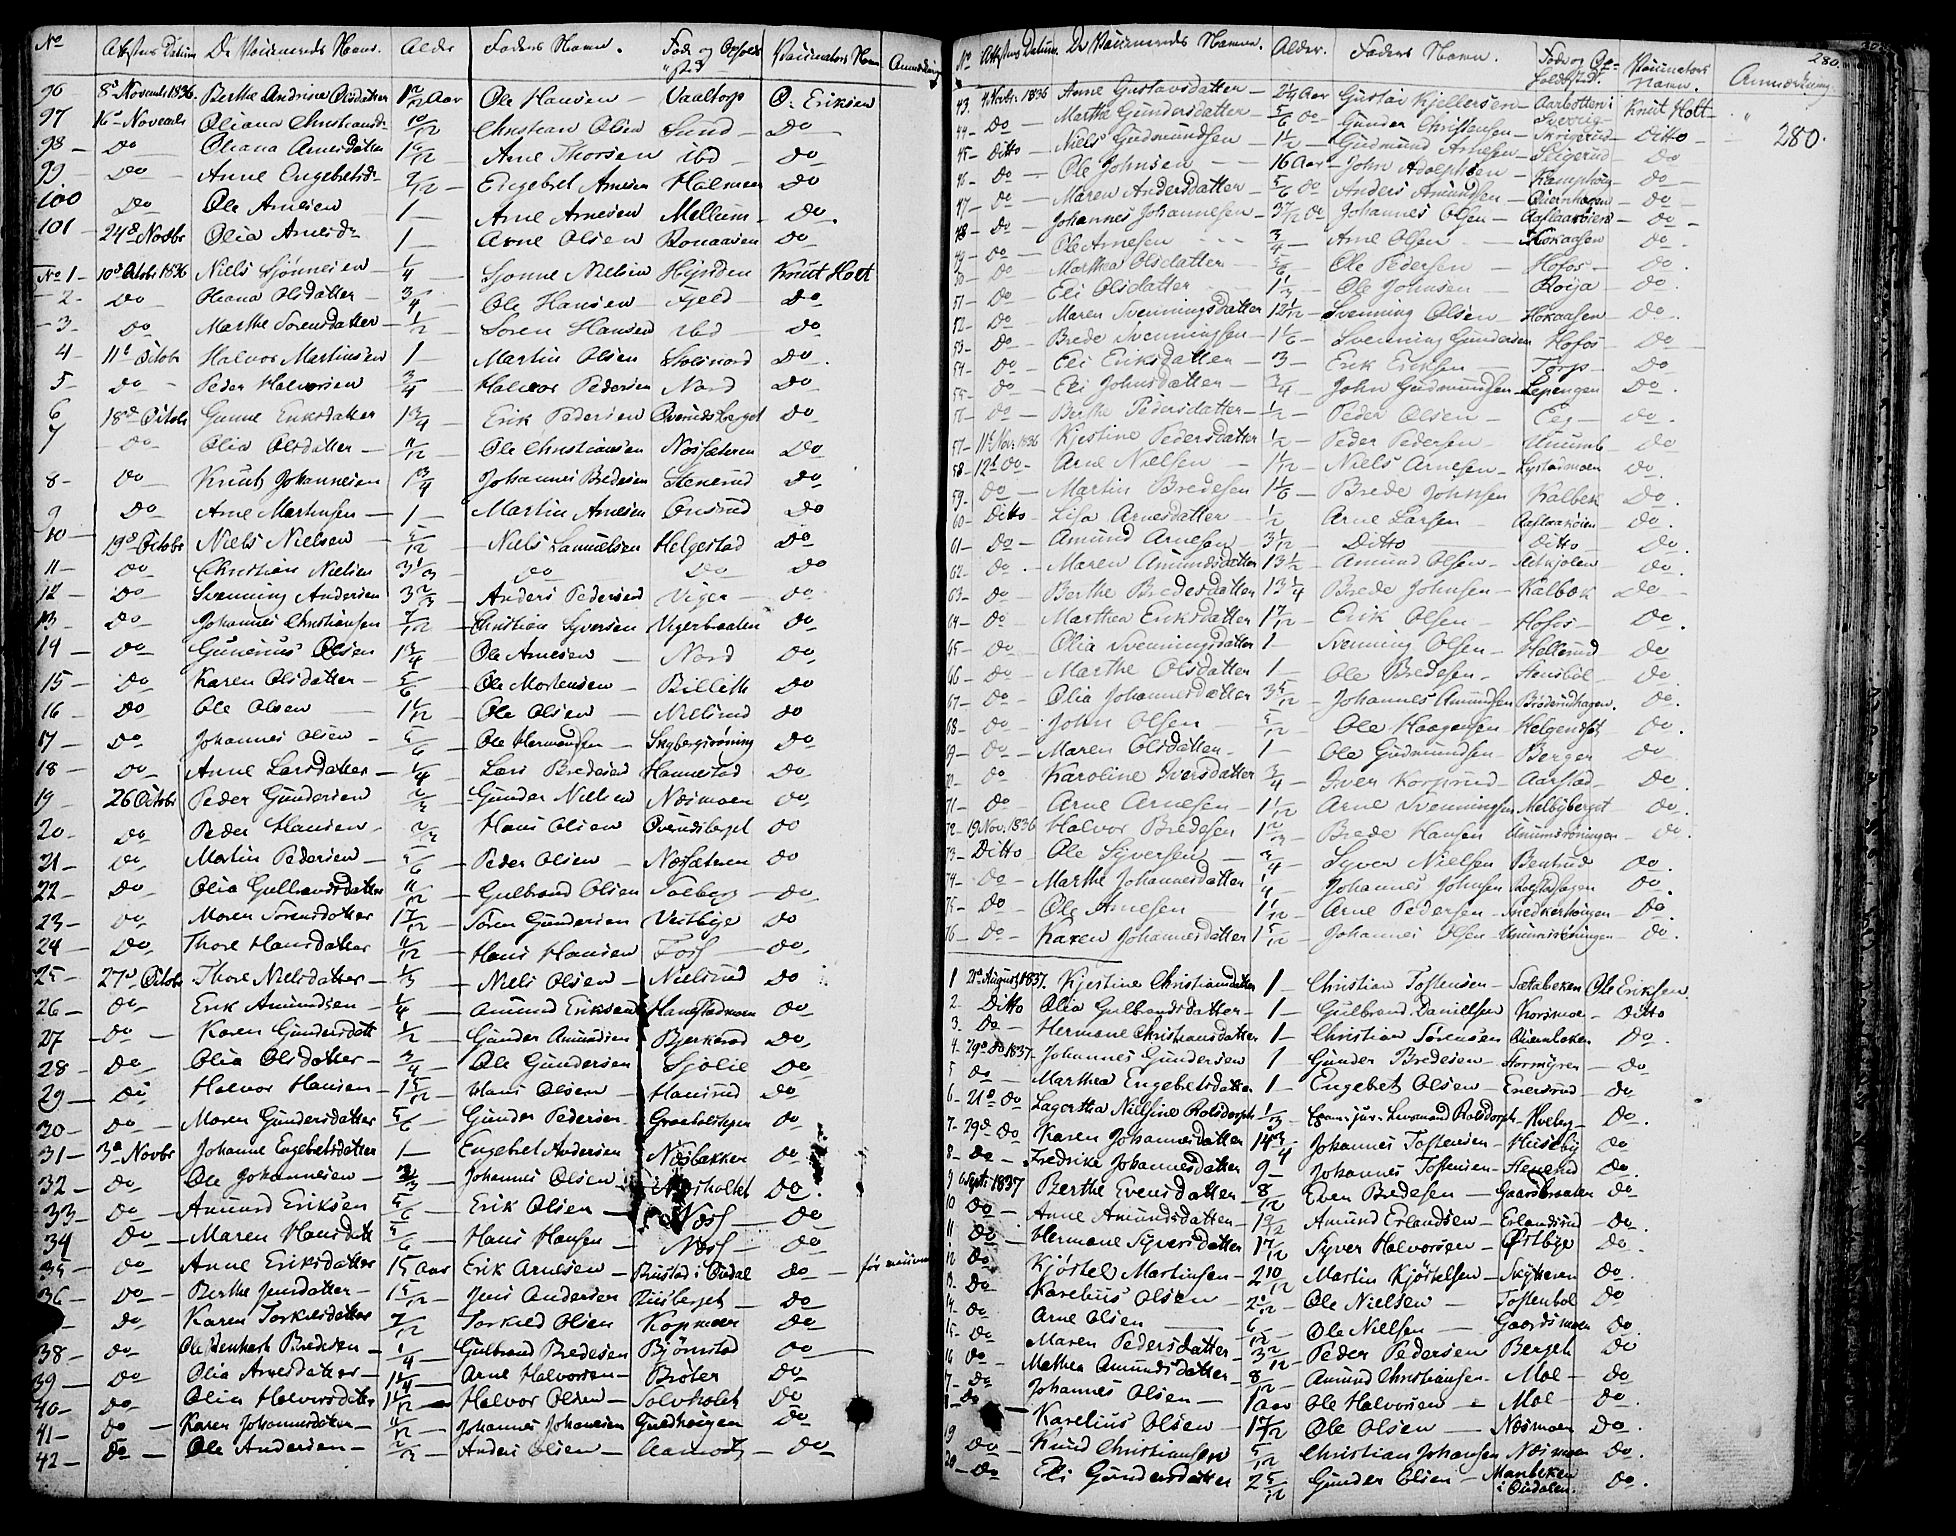 No Attestens Datum De Vaccineredes Navne. Alder Faders Navn. Føde og Opholds sted Vaccinators Navn Anmærkning
96 8de Novemb 1836. Berthe Andrine Olsdatter 1 2/12 Aar Ole Hansen Vaaltorp O. Eriksen
97 16de Novemb Oliana Christiansd. 10/12 Christian Olsen Sund Do
98 Do Oliana Arnesdatter 1 Arne Thorsen ibd Do
99 Do Anne Engebretsd. 7/12 Engebret Arnesen Holmen Do
100 Do Ole Arnesen 1 Arne Arnesen Mellum Do.
101 24de Novbr Olia Arnesd. 1 Arne Olsen Ronaasen Do
No 1 10de Octobr 1836 Niels Sjønnesen 1/4 Sjonne Nielsen Høpsden Knut Holt
2 Do Oliana Olsdatter 3/4 Ole Hansen Fjeld Do
3 Do Marthe Sorensdatter 1/2 Soren Hansen ibid Do
4 11te Octobr Halvor Martinsen 1 Martin Olsen Solsnord Do.
5 Do Peder Halvorsen 3/4 Halvor Pedersen Nord Do
6 18de Octobr Gunne Eriksdatter 1 3/4 Erik Pedersen Overudsberget Do
7 Do Olia Olsdatter 11/12 Ole Christiansen Næsfæteren Do
8 Do Knut Johannesen 1 3/4 Johannes Bredesen Stenerud Do
9 Do Arne Martinsen 1 Martin Arnesen Onsrud Do
10 19de Octobr Niels Nielsen 5/12 Niels Samuelsen Helgestad Do
11 Do Christian Nielsen 3 1/3 Do Do Do
12 Do Svenning Andersen 3 2/3 Anders Pedersen Viger Do
13 Do Johannes Christiansen 7/12 Christian Syversen Vigerbraaten Do
14 Do Gunerius Olsen 1 3/4 Ole Arnesen Nord Do
15 Do Karen Olsdatter 5/6 Ole Mortensen Billith Do
16 Do Ole Olsen 1 1/12 Ole Olsen Nielsrud Do
17 Do Johannes Olsen 5/6 Ole Hermansen Sagbergsroning Do
18 Do Anne Larsdatter 1/4 Lars Bredesen Hannestad Do
19 26 Octobr Peder Gundersen 2/3 Gunder Nielsen Næsmoen Do
20 Do Peder Hansen 2/3 Hans Olsen Overudsberget Do
21 Do Martin Pedersen 5/6 Peder Olsen Næsfætren Do
22 Do Olia Gulbrandsdatter 11/12 Gulbrand Olsen Solberg Do
23 Do Maren Sorensdatter 1 7/12 Søren Gundersen Vestbye Do
24 Do Thore Hansdatter 11/12 Hans Hansen Foss Do
25 27de Octobr Thore Nielsdatter 1/3 Niels Olsen Nielsrud Do
26 Do Erik Amundsen 1/4 Amund Eriksen Hanestadmoen Do
27 Do Karen Gundersdatt 1/2 Gunder Amundsen Bjerkerud Do
28 Do Olia Olsdatter 3/4 Ole Gundersen Sjølie Do
29 Do Halvor Hansen 1 5/12 Hans Olsen Hansrud Do
30 Do Maren Gundersdatter 5/6 Gunder Pedersen Graaholtstpen Do
31 3de Novbr Johanne Engebretsdatter 1 Engebret Andersen Næsbakken Do
32 Do Ole Johannesen 2/3 Johannes Olsen Næsholtet Do.
33 Do Amund Eriksen 5/6 Erik Olsen Næss Do
34 Do Maren Hansdatt 5/6 Hans Hansen Næss Do
35 Do Anne Eriksdatter 15 Aar Erik Arnesen Bustad i Oudal Do
36 Do Berthe Jensdatter 1 5/12 Jens Andersen Riisberget Do
Do Karen Torkelsdatter 7/12 Torkild Olsen Kopmoen Do
38 Do Ole Bernhart Bredesen 1/4 Gulbrand Bredesen Bjørnstad Do
39 Do Olia Arnesdatter 1 1/4 Arne Halvorsen Broten Do
40 Do Olia Halvorsdatter 1 1/12 Halvor Olsen Solvholdt Do
41 Do Karen Johannesdatter 11/12 Johannes Johannesen Guldhaugen Do
42 Do Ole Andersen 2/3 Anders Olsen Aamodt Do
No Attestens Datum. De Vaccineredes Navne. Alder. Faders Navn. Føde og Opholdsstedt. Vaccinators Navn. Anmærkning. 280.
280.
43. 4 Novbr. 1836 Anne Gustavsdatter 2 1/4 Aar Gustav Kjellersen Aarbotten i Sverrig Knut Holt
44 Do Marthe Gundersdatter 5/6 Do Gunder Christensen Skrigerud Ditto
45 Ditto Niels Gudmundsen 1 1/2 Gudmund Arnesen Seigerud Do
46 Do Ole Johnsen 16 Aar John Adolphsen Kamphoug Do
47 Do Maren Andersdatter 5/6 Do Anders Amundsen Qvernhagen Do
48 Do Johannes Johannesen 3 7/12 Do Johannes Olsen Aaslaaroien Do
49 Do Ole Arnesen 3/4 Arne Olsen Hokaasen Do
50 Do Marthea Olsdatter 5/6 Ole Pedersen Hofos Do.
51 Do Eli Olsdatter 1 1/3 Ole Johnsen Roija Do.
52 Do Maren Svenningsdatter 12 1/2 Svenning Olsen Hokaasen Do.
53 Do Brede Svenningsen 1 1/6 Svenning Gundersen Hofos Do
54 Do Eli Eriksdatter 3 Erik Eriksen Torp Do
55 Do Eli Johnsdatter 3/4 John Gudmundsen Lepengen Do.
56 Do Berthe Pedersdatter 1/2 Peder Olsen Eeg Do.
57 11te Nov. 1836 Kjestine Pedersdatter 1/2 Peder Pedersen Unumb Do
58 12te Do Arne Nielsen 1 1/12 Niels Arnesen Lystadmoen Do.
59 Do Martin Bredesen 1 1/6 Brede Johnsen Kalbek Do
60 Ditto Lisa Arnesdatter 1/2 Arne Larsen Aaslaaroien Do.
61 Do Amund Arnesen 3 1/2 Ditto Ditto Do.
62 Do Maren Amundsdatter 13 1/2 Amund Olsen Do.
63 Do Berthe Bredesdatter 13 1/4 Brede Johnsen Kalbek Do
64 Do Marthea Eriksdatter 1 7/12 Erik Olsen Hofos Do.
65 Do Olia Svenningsdatter 1 Svenning Olsen Hellerud Do
66 Do Marthe Olsdatter 1 Ole Bredesen Stensbøl Do
67 Do Olia Johannesdatter 3 5/12 Johannes Amundsen Broderudhagen. Do.
68 Do John Olsen 5/12 Ole Haagensen Helgendsbøl Do.
69 Do Maren Olsdatter 1 Ole Gudmundsen Berger Do
70 Do Karoline Iversdatter 3/4 Iver Korsrud Aarstad Do.
71 Do Arne Arnesen 1 1/12 Arne Svenningsen Melbyberget Do.
72 19 Nov. 1836 Halvor Bredesen 1 2/3 Brede Hansen Unumsroningen Do.
73 Ditto Ole Syversen 3/4 Syver Nielsen Bentrud Do.
74 Do Marthe Johannesdatter 1/4 Johannes Johnsen Rolstadhagen Do.
75 Do Ole Arnesen 1 1/12 Arne Pedersen Snedkerhaugen Do.
76 Do Karen Johannesdatter 1 5/12 Johannes Olsen Unumsroningen Do.
1 21de August 1837. Kjestine Christiansdatter 1 Christian Tostensen Sætabæken Ole Eriksen
2. Ditto Olia Gulbrandsdatter 1 Gulbrand Danielsen Korsmoe Ditto
3. Do Hermane Christiansdatter 1 Christian Sørensen Qvernbaken Do.
4 29de Do 1837. Johannes Gundersen 1 Gunder Bredesen Stormyren Do
5 Do Marthea Engebretsdatter 1 Engebret Olsen Enersrud Do
6 21de Do Lagertha Nielsine Rolsdorph 1/3 Exam. jur. Lusmand Rolsdorph Hveby Do.
7 29de Do Karen Johannesdatter 14 3/4 Johannes Tostensen Huseby Do
8 Do Fredrike Johannesdatter 9 Johannes Tostensen Stenerud Do.
9 6 Septr 1837 Berthe Evensdatter 8/12 Even Bredesen Gaardbraaten Do
10 Do Anne Amundsdatter 19/12 Amund Erlandsen Erlandsrud Do.
11 Do Hermane Syversdatter 1 7/12 Syver Halvorsen Østbye Do.
12 Do Kjøstel Martinsen 2 10/12 Martin Kjøstelsen Skytteren Do.
13 Do Karelius Olsen 2 1/12 Ole Nielsen Tostenbøl Do
14 Do Arne Olsen 6/12 Ole Nielsen Gaardsmoen Do.
15 Do Maren Pedersdatter 3 2/12 Peder Pedersen Berget Do
16 Do Mathea Amundsdatter 8/12 Amund Christiansen Moe Do
17 Do Johannes Olsen 1 Aar Ole Halvorsen Moe Do.
18 Do Karelius Olsen 1 7/12 Ole Olsen Næsmoen Do.
19 Do Knud Christiansen 5/12 Christian Johansen Næsmoen Do.
20 Do Eli Gundersdatter 2 5/12 Gunder Olsen Manbeken i Oudalen. Do.